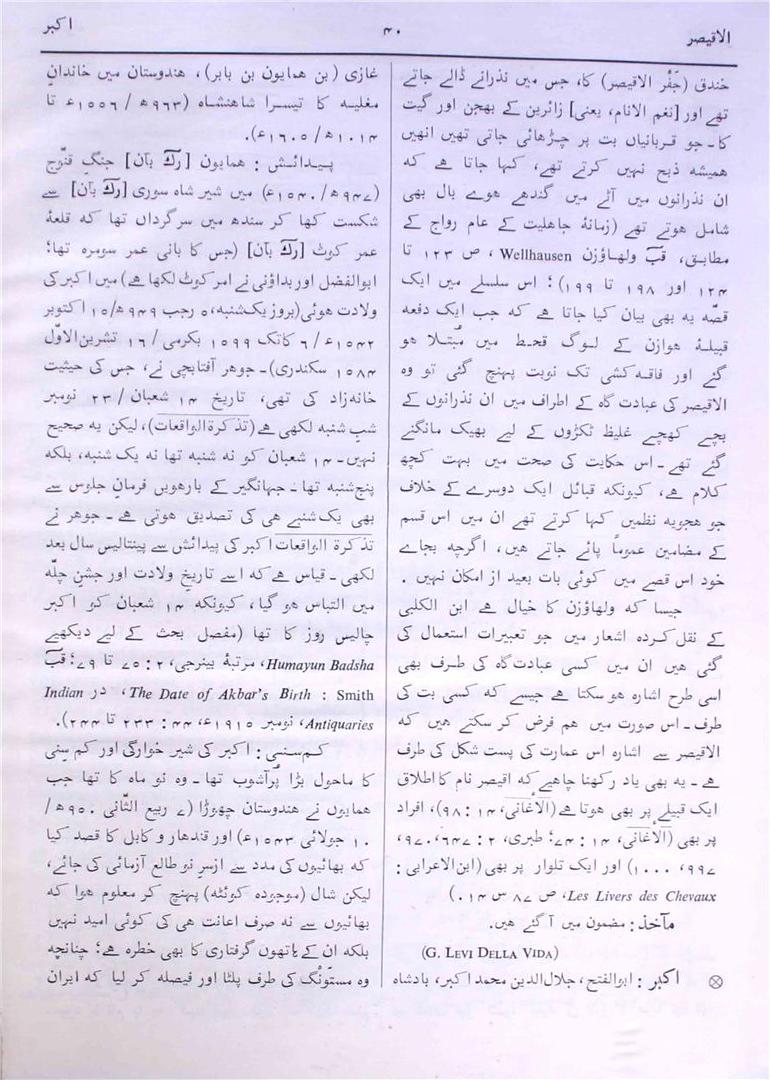 الاقیصر
۴۰
اکبر
خندق (جَفْر الاقیصر) کا، جس میں نذرانے ڈالے جاتے
تھے اور [نغم الانام، یعنی] زائرین کے بھجن اور گیت
کا۔ جو قربانیاں بت پر چڑھائی جاتی تھیں انھیں
ھمیشہ ذبح نہیں کرتے تھے، کہا جاتا ہے کہ
ان نذرانوں میں آٹے میں گندھے ھوے بال بھی
شامل ھوتے تھے (زمانۂ جاھلیت کے عام رواج کے
مطابق، قبَ ولہاؤزن Wellhausen ، ص ۱۲۳ تا
۱۲۴ اور ۱۹۸ تا ۱۹۹)؛ اس سلسلے میں ایک
قصّہ یہ بھی بیان کیا جاتا ہے کہ جب ایک دفعہ
قبیلۂ ھوازن کے لوگ قحط میں مُبتلا ھو
گئے اور فاقہ کشی تک نوبت پہنچ گئی تو وہ
الاقیصر کی عبادت گاہ کے اطراف میں ان نذرانوں کے
بچے کھچے غلیظ ٹکڑوں کے لیے بھیک مانگنے
گئے تھے۔ اس حکایت کی صحت میں بہت کچھ
کلام ہے، کیونکہ قبائل ایک دوسرے کے خلاف
جو ھجویہ نظمیں کہا کرتے تھے ان میں اس قسم
کے مضامین عموماً پائے جاتے ھیں، اگرچہ بجاے
خود اس قصے میں کوئی بات بعید از امکان نہیں .
جیسا کہ ولہاؤزن کا خیال ہے ابن الکلبی
کے نقل کردہ اشعار میں جو تعبیرات استعمال کی
گئی ھیں ان میں کسی عبادت گاہ کی طرف بھی
اسی طرح اشارہ ھو سکتا ہے جیسے کہ کسی بت کی
طرف۔ اس صورت میں ھم فرض کر سکتے ھیں کہ
الاقیصر سے اشارہ اس عمارت کی پست شکل کی طرف
ہے۔ یہ بھی یاد رکھنا چاھیے کہ اقیصر نام کا اطلاق
ایک قبیلے پر بھی ھوتا ہے (الأغانی، ۱۴ : ۹۸)، افراد
پر بھی (الأغانی، ۱۴ : ۷۴؛ طبری، ۲ : ۶۴۷، ۹۷۰،
۹۹۷، ۱۰۰۰) اور ایک تلوار پر بھی (ابن الاعرابی :
Les Livers des Chevaux، ص ۸۷ س ۱۴ .)
مآخذ : مضمون میں آ گئے ھیں.
(G. LEVI DELLA VIDA)
⊗ اکبر : ابوالفتح، جلال الدین محمد اکبر، بادشاہ
غازی (بن ھمایون بن بابر)، ھندوستان میں خاندانِ
مغلیہ کا تیسرا شاھنشاہ (۹۶۳ھ / ۱۵۵۶ء تا
۱۰۱۴ھ / ۱۶۰۵ء).
پیدائش : ھمایون [رکَ بآن] جنگِ قنّوج
(۹۴۷ھ / ۱۵۴۰ء) میں شیر شاہ سوری [رکَ بآن] سے
شکست کھا کر سندھ میں سرگرداں تھا کہ قلعۂ
عمر کوٹ [رکَ بآن] (جس کا بانی عمر سومرہ تھا؛
ابوالفضل اور بداؤنی نے امر کوٹ لکھا ہے) میں اکبر کی
ولادت ھوئی (بروز یک شنبہ، ۵ رجب ۹۴۹ھ / ۱۵ اکتوبر
۱۵۴۲ء / ۶ کاتک ۱۵۹۹ بکرمی / ۱۶ تشرین الاوّل
۱۵۸۴ سکندری)۔ جوھر آفتابچی نے، جس کی حیثیت
خانہ زاد کی تھی، تاریخ ۱۴ شعبان / ۲۳ نومبر
شبِ شنبہ لکھی ہے (تذکرۃ الواقعات)، لیکن یہ صحیح
نہیں۔ ۱۴ شعبان کو نہ شنبہ تھا نہ یک شنبہ، بلکہ
پنج شنبہ تھا۔ جہانگیر کے بارھویں فرمانِ جلوس سے
بھی یک شنبے ھی کی تصدیق ھوتی ہے۔ جوھر نے
تذکرۃ الواقعات اکبر کی پیدائش سے پینتالیس سال بعد
لکھی۔ قیاس ہے کہ اسے تاریخِ ولادت اور جشنِ چلّہ
میں التباس ھو گیا، کیونکہ ۱۴ شعبان کو اکبر
چالیس روز کا تھا (مفصل بحث کے لیے دیکھیے
Humayun Badsha، مرتبۂ بینرجی، ۲ : ۷۵ تا ۷۹؛ قبَ
Smith : The Date of Akbar's Birth، در Indian
Antiquaries، نومبر ۱۹۱۵ء، ۴۴ : ۲۳۳ تا ۲۴۴).
کم سنی : اکبر کی شیر خوارگی اور کم سنی
کا ماحول بڑا پُرآشوب تھا۔ وہ نو ماہ کا تھا جب
ھمایوں نے ھندوستان چھوڑا (۷ ربیع الثّانی ۹۵۰ھ /
۱۰ جولائی ۱۵۴۳ء) اور قندھار و کابل کا قصد کیا
کہ بھائیوں کی مدد سے ازسرِ نو طالع آزمائی کی جائے،
لیکن شال (موجودہ کوئٹہ) پہنچ کر معلوم ھوا کہ
بھائیوں سے نہ صرف اعانت ھی کی کوئی امید نہیں
بلکہ ان کے ہاتھوں گرفتاری کا بھی خطرہ ہے؛ چنانچہ
وہ مستَونگ کی طرف پلٹا اور فیصلہ کر لیا کہ ایران